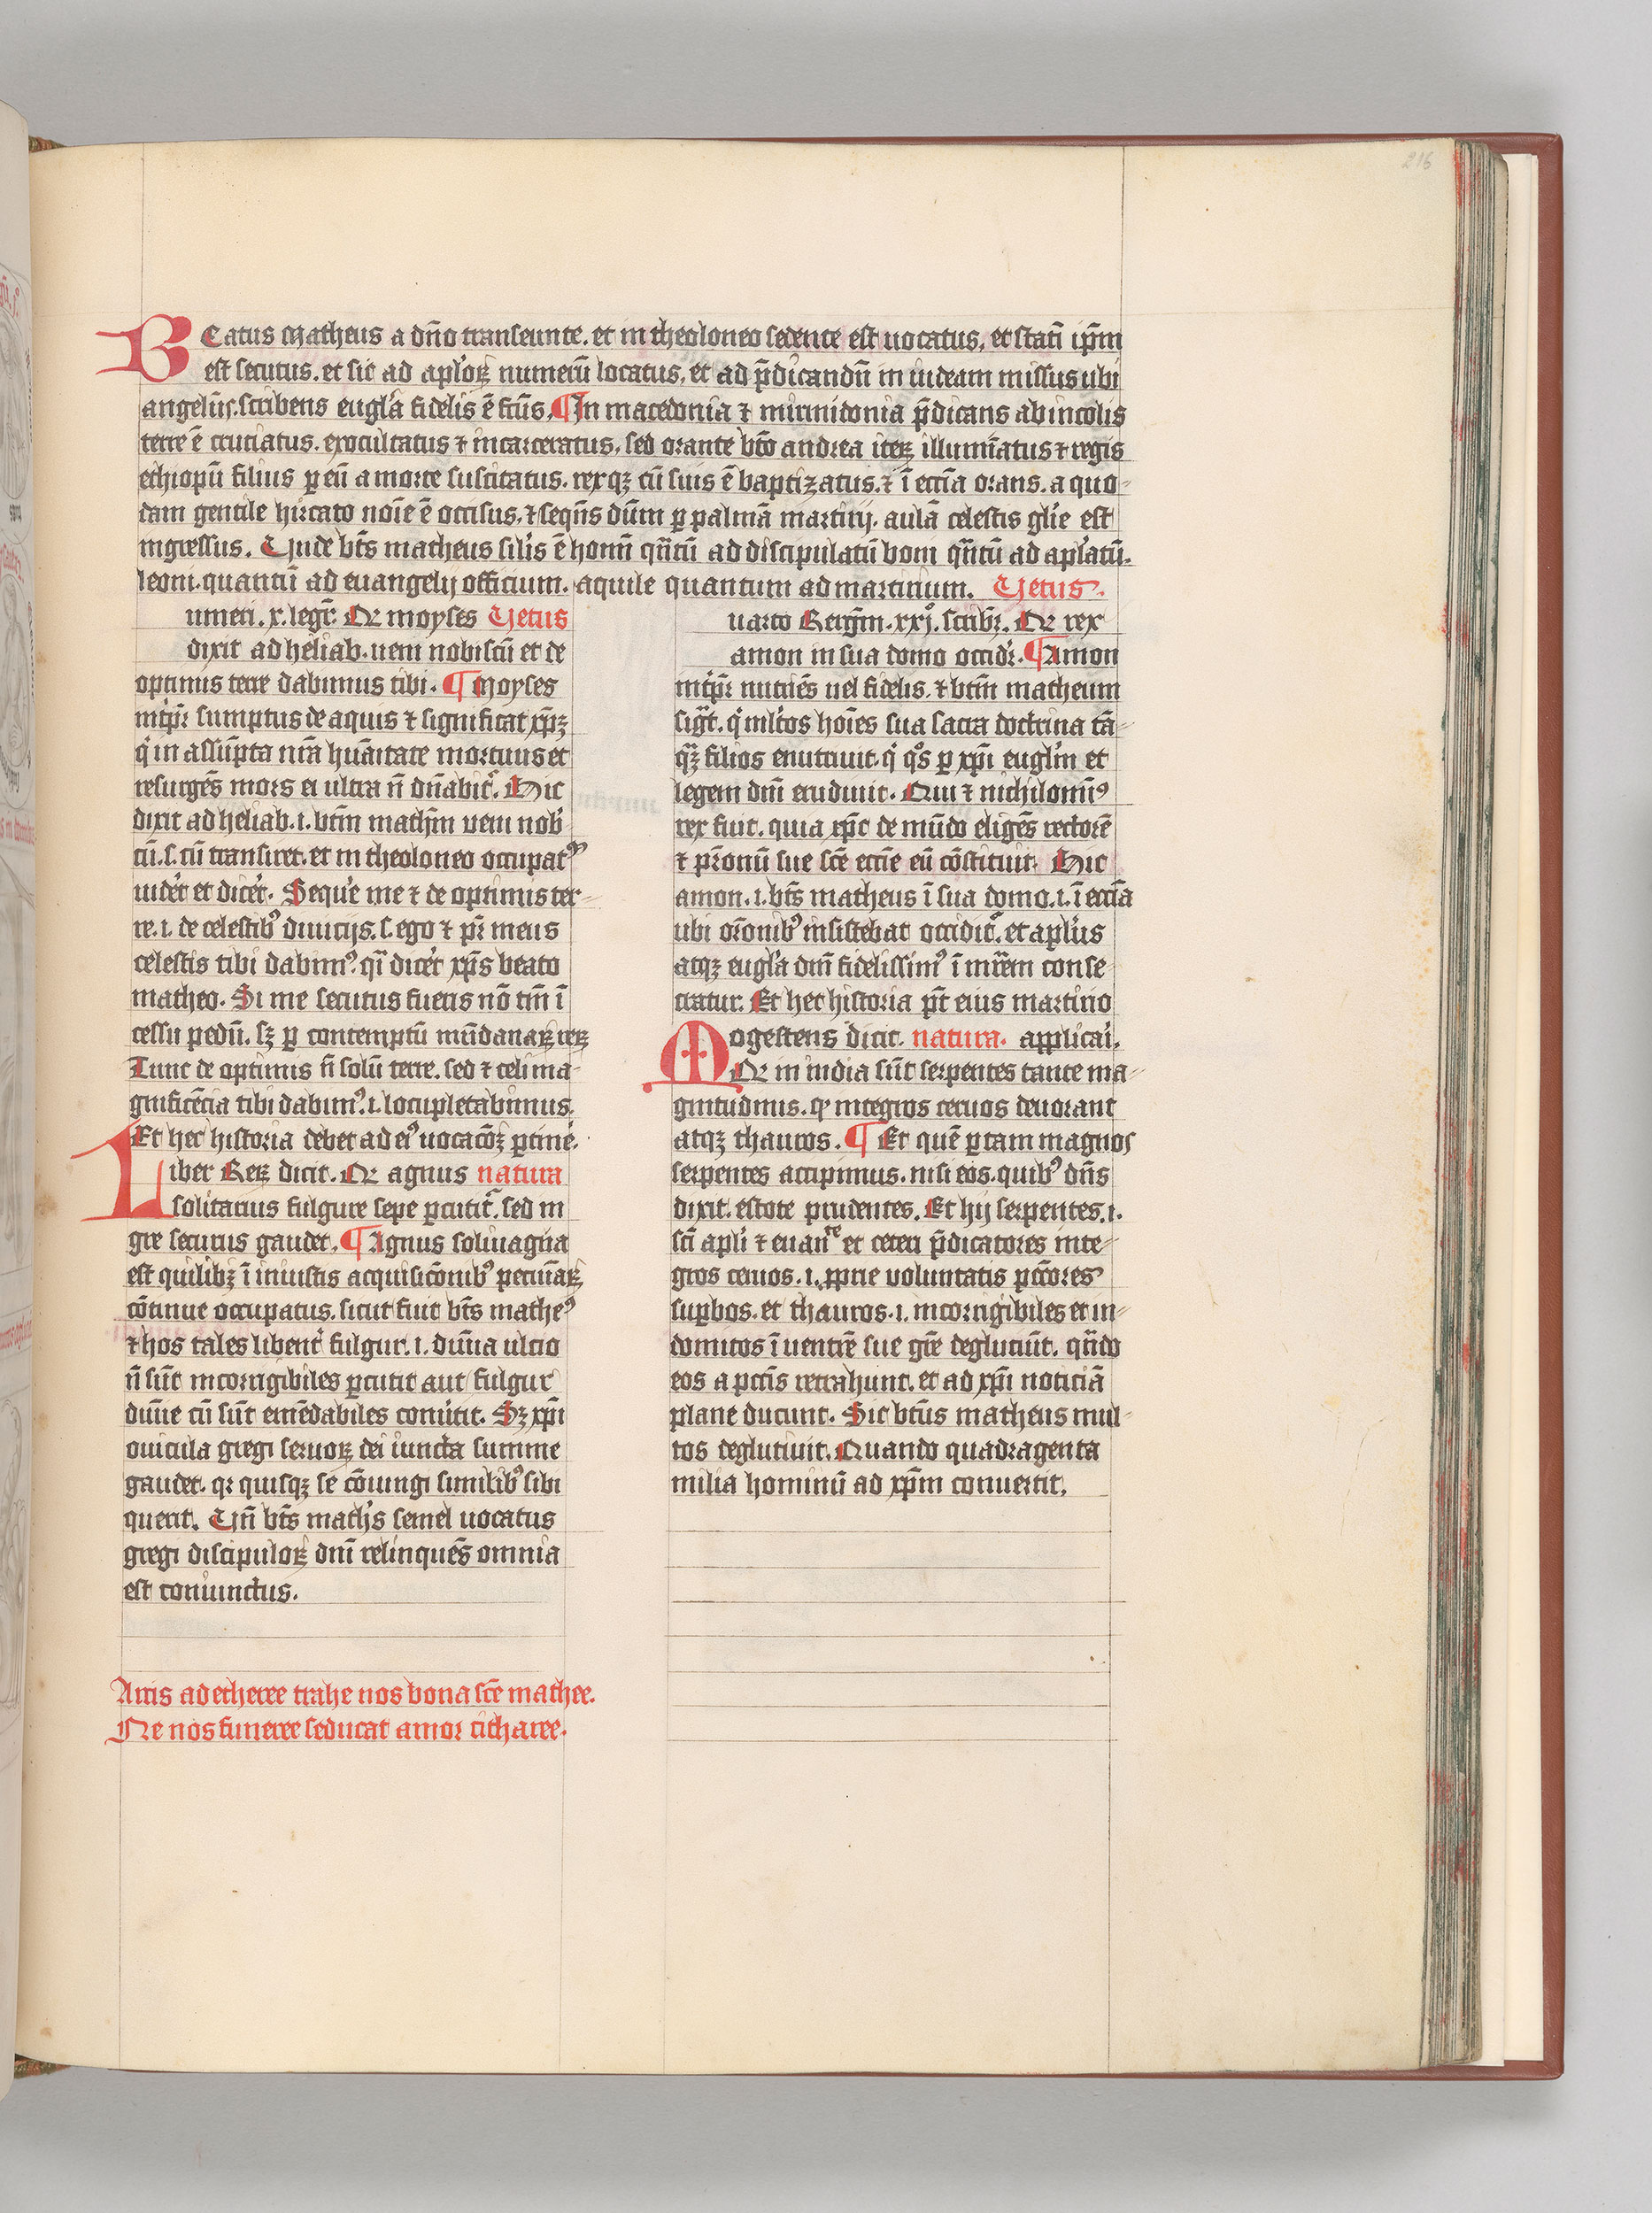 216
BEatus Matheus a dn̄o transeunte. et in theoloneo sedente est uocatus. et statī ip̄m
est secutus. et sic ad aplo𝑟ꝝ numerū locatus. et ad p̄dicandū in iudeam missus ubi
angeliꝫ. scribens eugl'a fidelis ē fctūs. ¶In macedonia ⁊ mirmidonia p̄dicans ab incolis
terre ē cruciatus. exocultatus ⁊ incarceratus. sed orante bt̄o andrea iteꝝ illumīatus ⁊ regis
ethiopū filius ꝑ eū a morte suscitatus. rexqꝫ cū suis ē baptizatus. ⁊ ī ecc̄ia orans. a quo-
dam gentile hircato noīe ē occisus. ⁊ seqn̄s dūm ꝑ palmā martirij. aulā celestis gl'ie est
ingressus. Vnde bt̄s matheus silis ē homī qn̄tū ad discipulatū boui qn̄tū ad apl'atū.
leoni. quantū ad euangelij officium. aquile quantum ad martirium. Vetus.
umeri. x. legr̄. Qr moyses Vetus
dixit ad heliab. ueni nobiscū et de
optimis terre dabimus tibi. ¶ Moyses
int̄pr̄ sumptus de aquis ⁊ significat xp̄ꝫ
q' in assūpta nr̄a hūaītate mortuus et
resurgēs mors ei ultra n̄ dn̄abit᷑. Hic
dixit ad heliab .i. bt̄m math̄m ueni nob'
cū .s. cū transiret. et in theoloneo occupat᷒
uidet' et dicet'. Seque me ⁊ de optimis ter-
re .i. de celestibꝰ diuicijs .s. ego ⁊ pr̄ meus
celestis tibi dabimꝰ. qī dicet' xp̄s beato
matheo. Si me secutus fueris nō tm̄ ī
cessu pedū. sꝫ ꝑ contemptū mūdanaꝝ reꝝ
Tunc de optimis n̄ solū terre. sed ⁊ celi ma-
gnificēcia tibi dabimꝰ. i. locupletabimus.
Et hec historia debet ad eiꝰ uocacōꝫ ꝑtine'.
Liber Reꝝ dicit. Qr agnus natura
solitarius fulgure sepe ꝑcutit᷑. sed in
gre securus gaudet. ¶Agnus soliuagūa
est quilibꝫ ī iniustis acquisicōnibꝰ pecuīaꝝ
cōtinue occupatus. sicut fuit bt̄s matheꝰ
⁊ hos tales libent' fulgur. i. diuīa ulcio
n̄ sūt incorrigibiles ꝑcutit aut fulgur
diuīe cū sūt emēdabiles conu'tit. Sꝫ xp̄i
ouicula gregi seruoꝝ dei iuncta summe
gaudet. qr quisqꝫ se cōiungi similibꝰ sibi
querit. Vn̄ bt̄s math's semel uocatus
gregi discipuloꝝ dn̄i relinquēs omnia
est coniunctus.
Arcis ad etheree trahe nos bona sc̄e mathee.
Ne nos funeree seducat amor citharee.
uarto Regūm. xxj°. scribr̄. Qr rex
amon in sua domo occidr̄. ¶Amon
int̄pr̄ nutriēs uel fidelis. ⁊ bt̄m matheum
sigt̄. q' ml'tos hoīes sua sacra doctrina tā-
qꝫ filios enutriuit. q' q°s ꝑ xp̄i eugl'm et
legem dn̄i erudiuit. Qui ⁊ nichilomīꝰ
rex fuit. quia xp̄c de mūdo eligēs rectorē
⁊ pr̄onū sue sc̄e ecc̄ie eū cōstituit. Hic
amon. i. bt̄s matheus ī sua domo. i. ī ecc̄ia
ubi or̄onibꝰ insistebat occidit᷑. et apl'us
atqꝫ eugl'a dn̄i fidelissimꝰ ī mr̄em conse-
cratur. Et hec historia pt̄ eius martirio
Mogestens dicit. natura. applicai'.
Qr in india sūt serpentes tante ma-
gnitudinis. qꝫ integros ceruos deuorant
atqꝫ thauros. ¶ Et quē ꝑ tam magnos
serpentes accipimus. nisi eos. quibꝰ dn̄s
dixit. estote prudentes. Et hij serpentes. i.
sc̄i apl'i ⁊ euanᵗᵉ et ceteri p̄dicatores inte-
gros ceruos. i. ꝓprie uoluntatis pcc̄ores
suꝑbos. et thauros. i. incorrigibiles et in-
domitos ī uentrē sue gr̄e deglutiūt. qn̄do
eos a pccīs retrahunt. et ad xp̄i noticiā
plane ducunt. Sic bt̄us matheus mul-
tos deglutiuit. Quando quadragenta
milia hominū ad xp̄m conuertit.